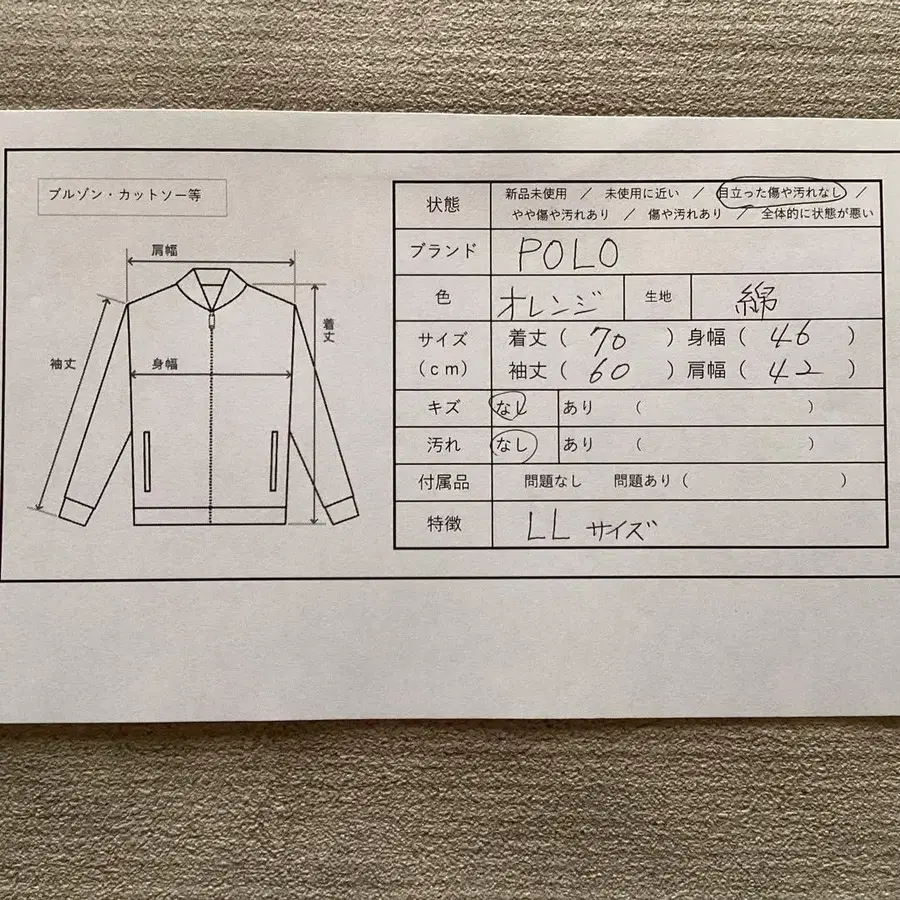 ブルゾン・カットソー等
肩幅
着丈
袖丈
身幅
状態 新品未使用 / 未使用に近い / 目立った傷や汚れなし /
やや傷や汚れあり / 傷や汚れあり / 全体的に状態が悪い
ブランド POLO
色 オレンジ 生地 綿
サイズ 着丈( 70 ) 身幅( 46 )
(cm) 袖丈( 60 ) 肩幅( 42 )
キズ なし あり ( )
汚れ なし あり ( )
付属品 問題なし 問題あり( )
特徴 LL サイズ